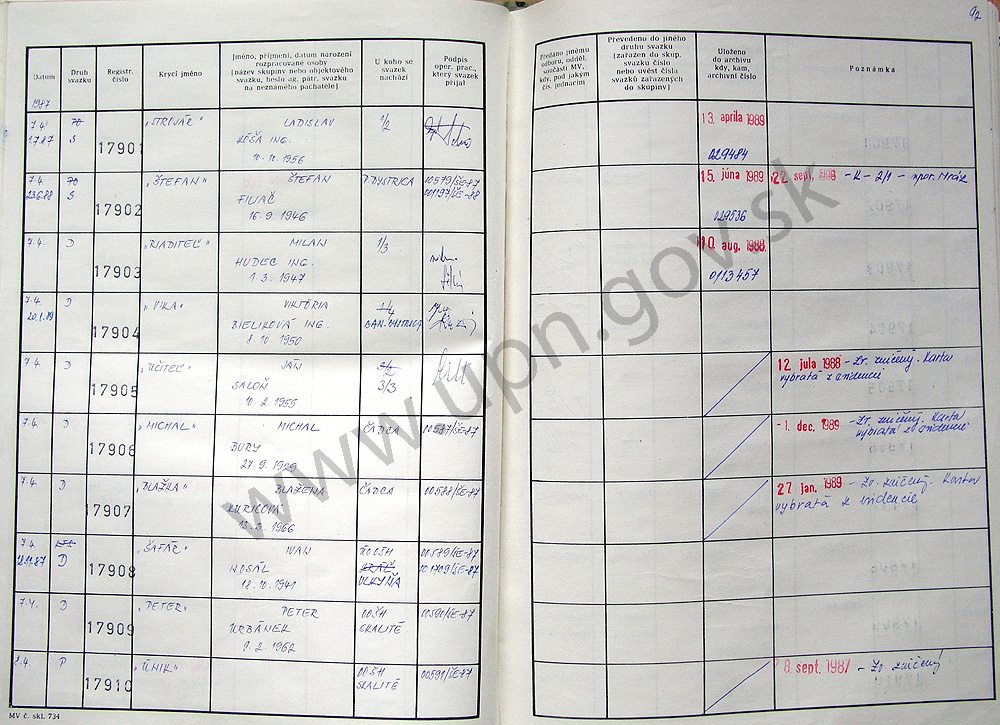 92
Datum
Druh
svazku
Registr.
číslo
Krycí jméno
Jméno, příjmení, datum narození
rozpracované osoby
(název skupiny nebo objektového
svazku, heslo ag. pátr. svazku
na neznámého pachatele)
U koho se
svazek
nachází
Podpis
oper. prac.,
který svazek
přijal
Předáno jinému
odboru, odděl.
součásti MV,
kdy, pod jakým
čís. jednacím
Převedeno do jiného
druhu svazku
(zařazen do skup.
svazku číslo
nebo uvést čísla
svazků zařazených
do skupiny)
Uloženo
do archivu
kdy, kam,
archivní číslo
Poznámka
1987
7.4.
S
17901
"STROJÁR"
LADISLAV
ING.
1956
1/2
13. apríla 1989
029484
7.4.
23.6.88
S
17902
"ŠTEFAN"
ŠTEFAN
FILIAČ
16. 9. 1946
B. BYSTRICA
00579/ŠE-87
001197/ŠE-88
15. júna 1989
029536
22. sept. 1988 - K - 2/1 - npor. Mráz
7.4.
D
17903
"RIADITEĽ"
MILAN
HUDEC ING.
1. 3. 1947
1/3
10. aug. 1988
0113457
7.4.
20.1.89
D
17904
"VIKA"
VIKTÓRIA
BIELIKOVÁ ING.
8. 10. 1950
1/4
BAN. BYSTRICA
7.4.
D
17905
"UČITEĽ"
JÁN
SALOŇ
10. 2. 1955
3/3
12. júla 1988 - Zv. zničený. Karta
vybratá z evidencie
7.4.
D
17906
"MICHAL"
MICHAL
BURY
27. 9. 1929
ČADCA
00587/ŠE-87
- 1. dec. 1989 - Zv. zničený. Karta
vybratá z evidencie
7.4.
D
17907
"BLAŽKA"
BLAŽENA
1966
ČADCA
00588/ŠE-87
27. jan. 1989 - Zv. zničený. Karta
vybratá z evidencie
7.4.
D
17908
"ŠAFÁR"
IVAN
NOSÁĽ
18. 10. 1941
00589/ŠE-87
001709/ŠE-87
7.4.
D
17909
"PETER"
PETER
URBÁNEK
9. 2. 1962
OOŠH
SKALITÉ
00590/ŠE-87
7.4.
P
17910
"ÚNIK"
OOŠH
SKALITÉ
00591/ŠE-87
8. sept. 1987 - Zv. zničený
MV č. skl. 734
www.upn.gov.sk